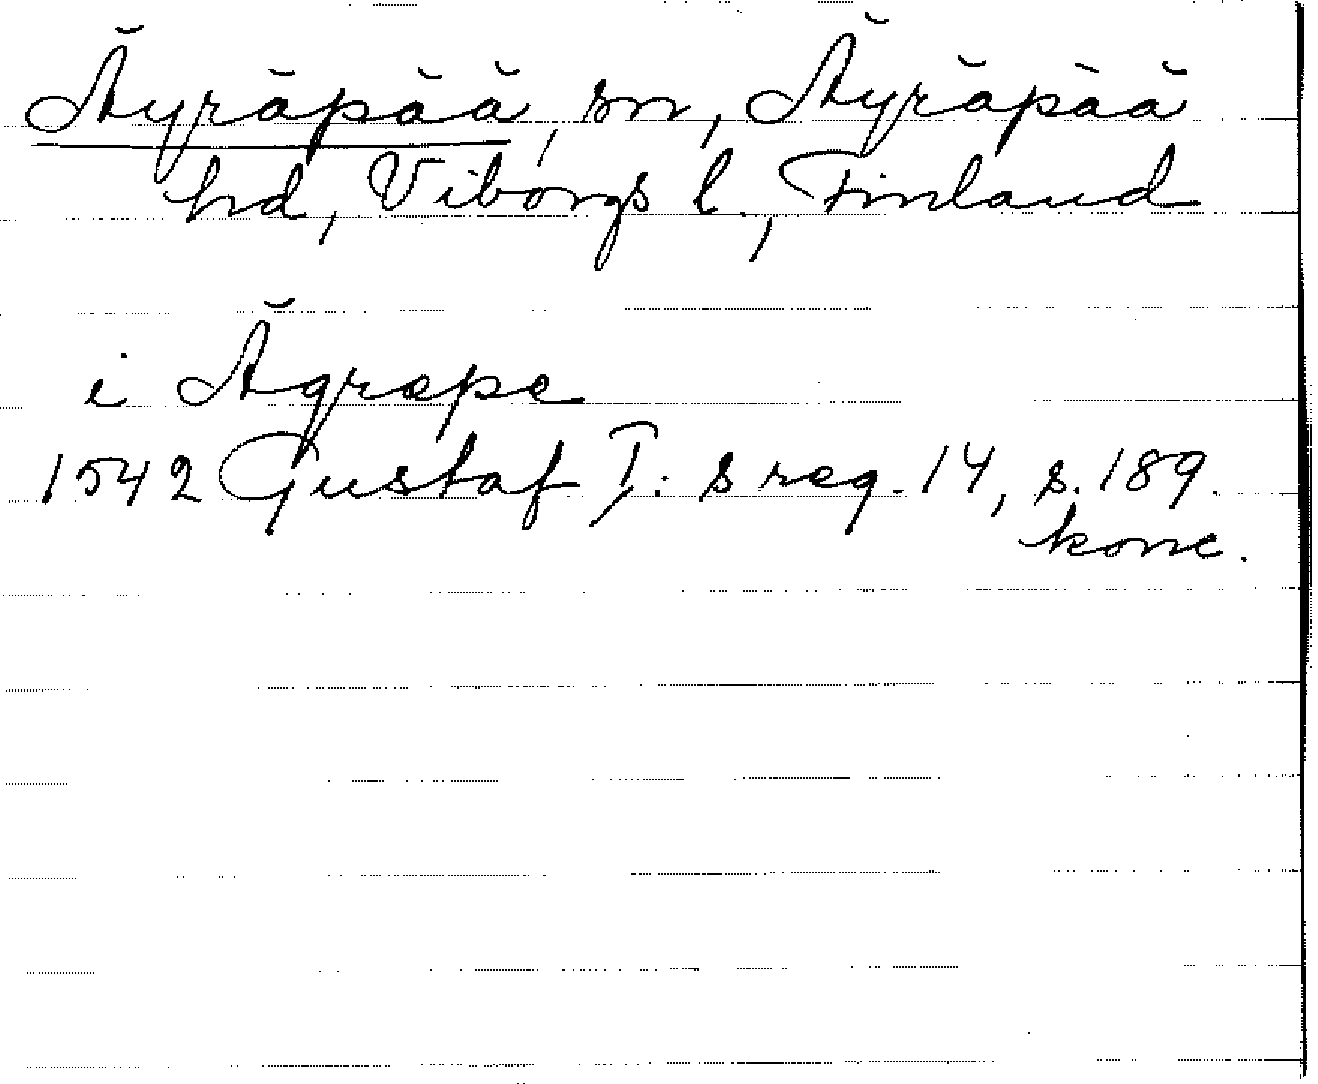 Äyräpää, sn, Äyräpää
hd, Viborgs l., Finland
i Ägrepe
1542 Gustaf I: s reg. 14, s. 189.
konc.